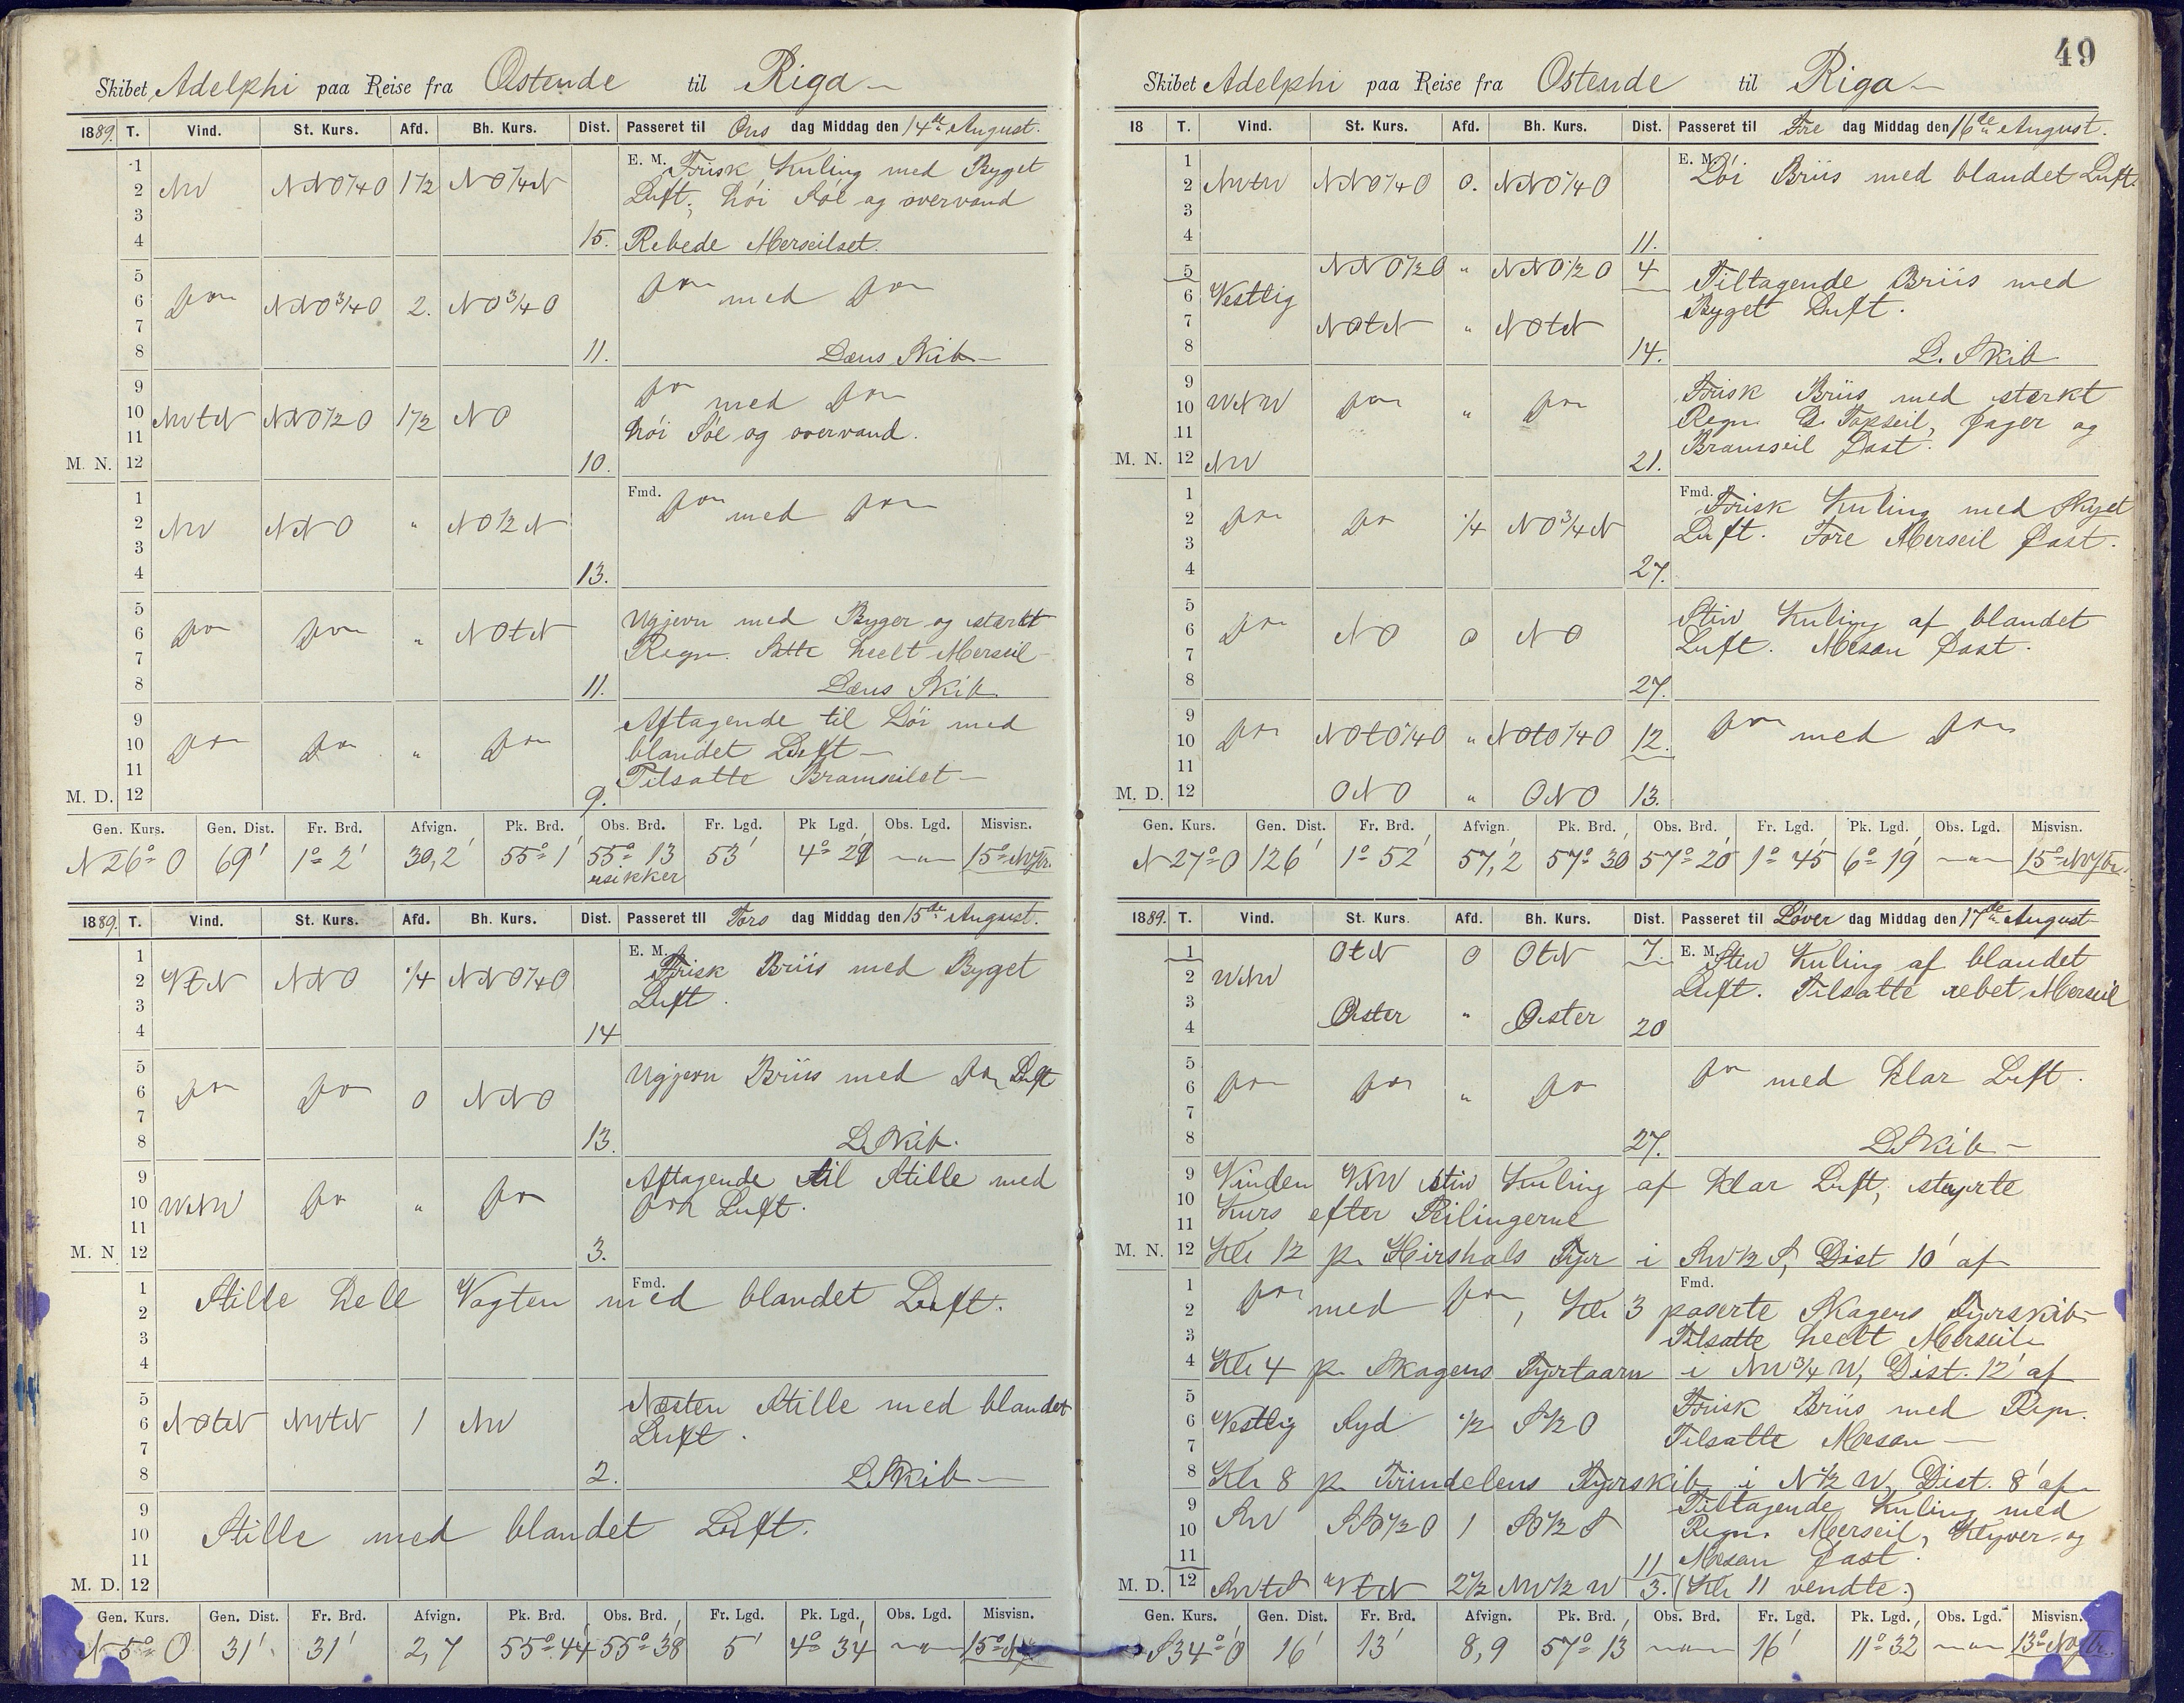 Skibet Adelphi paa Reise fra Ostende til Riga
1889. T. Vind. St. Kurs. Afd. Bh. Kurs. Dist. Passeret til Ons dag Middag den 14de August.
1 E. M. Frisk Kuling med Byget
2 NW NNO1/4O 1 1/2 NO1/4N Luft, høi Søe og overvand
3
4 15. Rebede Merseilset.
5
6 Do NNO3/4O 2. NO3/4O Do med Do
7
8 11. Læns Skib
9 Do med Do
10 NWtN NNO1/2O 1 1/2 NO
11 høi Søe og overvand.
M. N. 12 10.
1 Fmd. Do med Do
2 NW NNO " NO1/2N
3
4 13.
5 Ugjevn med Byger og stærkt
6 Do Do " NOtN Regn. Satte heelt Merseil
7
8 11. Læns Skib
9 Aftagende til Löi med
10 Do Do " Do blandet Luft
11 Tilsatte Bramseilet
M. D. 12 9.
Gen. Kurs. Gen. Dist. Fr. Brd. Afvign. Pk. Brd. Obs. Brd. Fr. Lgd. Pk Lgd. Obs. Lgd. Misvisn.
N 26° O 69' 1° 2' 30,2' 55° 1' 55° 13 53' 4° 29 " 15° NVstr.
usikker
1889. T. Vind. St. Kurs. Afd. Bh. Kurs. Dist. Passeret til Tors dag Middag den 15de August.
1 E. M. Frisk Briis med Byget
2 VtN NNO 1/4 NNO1/4O Luft.
3
4 14
5 Ugjevn Briis med Do Luft
6 Do Do O NNO
7
8 13. L Skib.
9 Aftagende til Stille med
10 WNW Do " Do Do Luft.
11
M. N 12 3.
1 Fmd.
2 Stille hele Vagten med blandet Luft.
3
4
5 Næsten Stille med blandet
6 NOtN NWtN 1 NW Luft.
7
8 2. L Skib
9
10 Stille med blandet Luft.
11
M. D. 12
Gen. Kurs. Gen. Dist. Fr. Brd. Afvign. Pk. Brd. Obs. Brd. Fr. Lgd. Pk. Lgd. Obs. Lgd. Misvisn.
N 5° O 31' 31' 2,7 55° 44' 55° 38' 5' 4° 34' " 15°
49
Skibet Adelphi paa Reise fra Ostende til Riga
18 T. Vind. St. Kurs. Afd. Bh. Kurs. Dist. Passeret til Fre dag Middag den 16de August.
1 E. M. Löi Briis med blandet Luft.
2 NWtW NNO1/4O O. NNO1/4O
3
4 11.
5 NNO1/2O " NNO1/2O 4 Tiltagende Briis med
6 Vestlig Byget Luft.
7 NOtN " NOtN
8 14. L. Skib
9 Frisk Briis med stærkt
10 WNW Do " Do Regn. B. Topseil, Jager og
11 Bramseil Fast.
M. N. 12 NW 21.
1 Fmd. Frisk Kuling med Skyet
2 Do Do 1/4 NO3/4N Luft. Fore Merseil Fast.
3
4 27.
5 Stiv Kuling af blandet
6 Do NO O NO Luft. Mesan Fast.
7
8 27.
9 Do med Do
10 Do NOtO1/4O " NOtO1/4O 12.
11
M. D. 12 ONO " ONO 13.
Gen. Kurs. Gen. Dist. Fr. Brd. Afvign. Pk. Brd. Obs. Brd. Fr. Lgd. Pk. Lgd. Obs. Lgd. Misvisn.
N 27° O 126' 1° 52' 57,2 57° 30' 57° 20' 1° 45' 6° 19' " 15° NVstr.
1889. T. Vind. St. Kurs. Afd. Bh. Kurs. Dist. Passeret til Löver dag Middag den 17de August
1 OtN O OtN 7. E. M. Stiv Kuling af blandet
2 WNW Luft. Tilsatte rebet Merseil
3 Øster " Øster
4 20
5 Do med klar Luft.
6 Do Do " Do
7
8 27. L Skib
9 Vinden VNW stiv Kuling af klar Luft, styrte
10 Kurs efter Peilingerne
11
M. N. 12 Kl. 12 p. Hirshals Fyr i SW1/2S, Dist 10' af
1 Fmd.
2 Do med Do, Kl. 3 paserte Skagens Fyrskib
3 Tilsatte heelt Merseil
4 Kl. 4 p. Skagens Fyrtaarn i NW3/4W, Dist. 12' af
5 Frisk Briis med Regn.
6 Vestlig Syd 1/2 S1/2O Tilsatte Mesan
7
8 Kl. 8 p. Trindelens Fyrskib i N1/2W, Dist. 8' af
9 Tiltagende Kuling med
10 SW SSO1/2O 1 SO1/2S Regn. Merseil, Klyver og
11 11 Mesan Fast.
M. D. 12 SWtS VtN 2 1/2 NW1/2W 3. (Kl. 11 vendte.)
Gen. Kurs. Gen. Dist. Fr. Brd. Afvign. Pk. Brd. Obs. Brd. Fr. Lgd. Pk. Lgd. Obs. Lgd. Misvisn.
S 34° O 16' 13' 8,9 57° 13' " 16' 11° 32' " 13° NVstr.